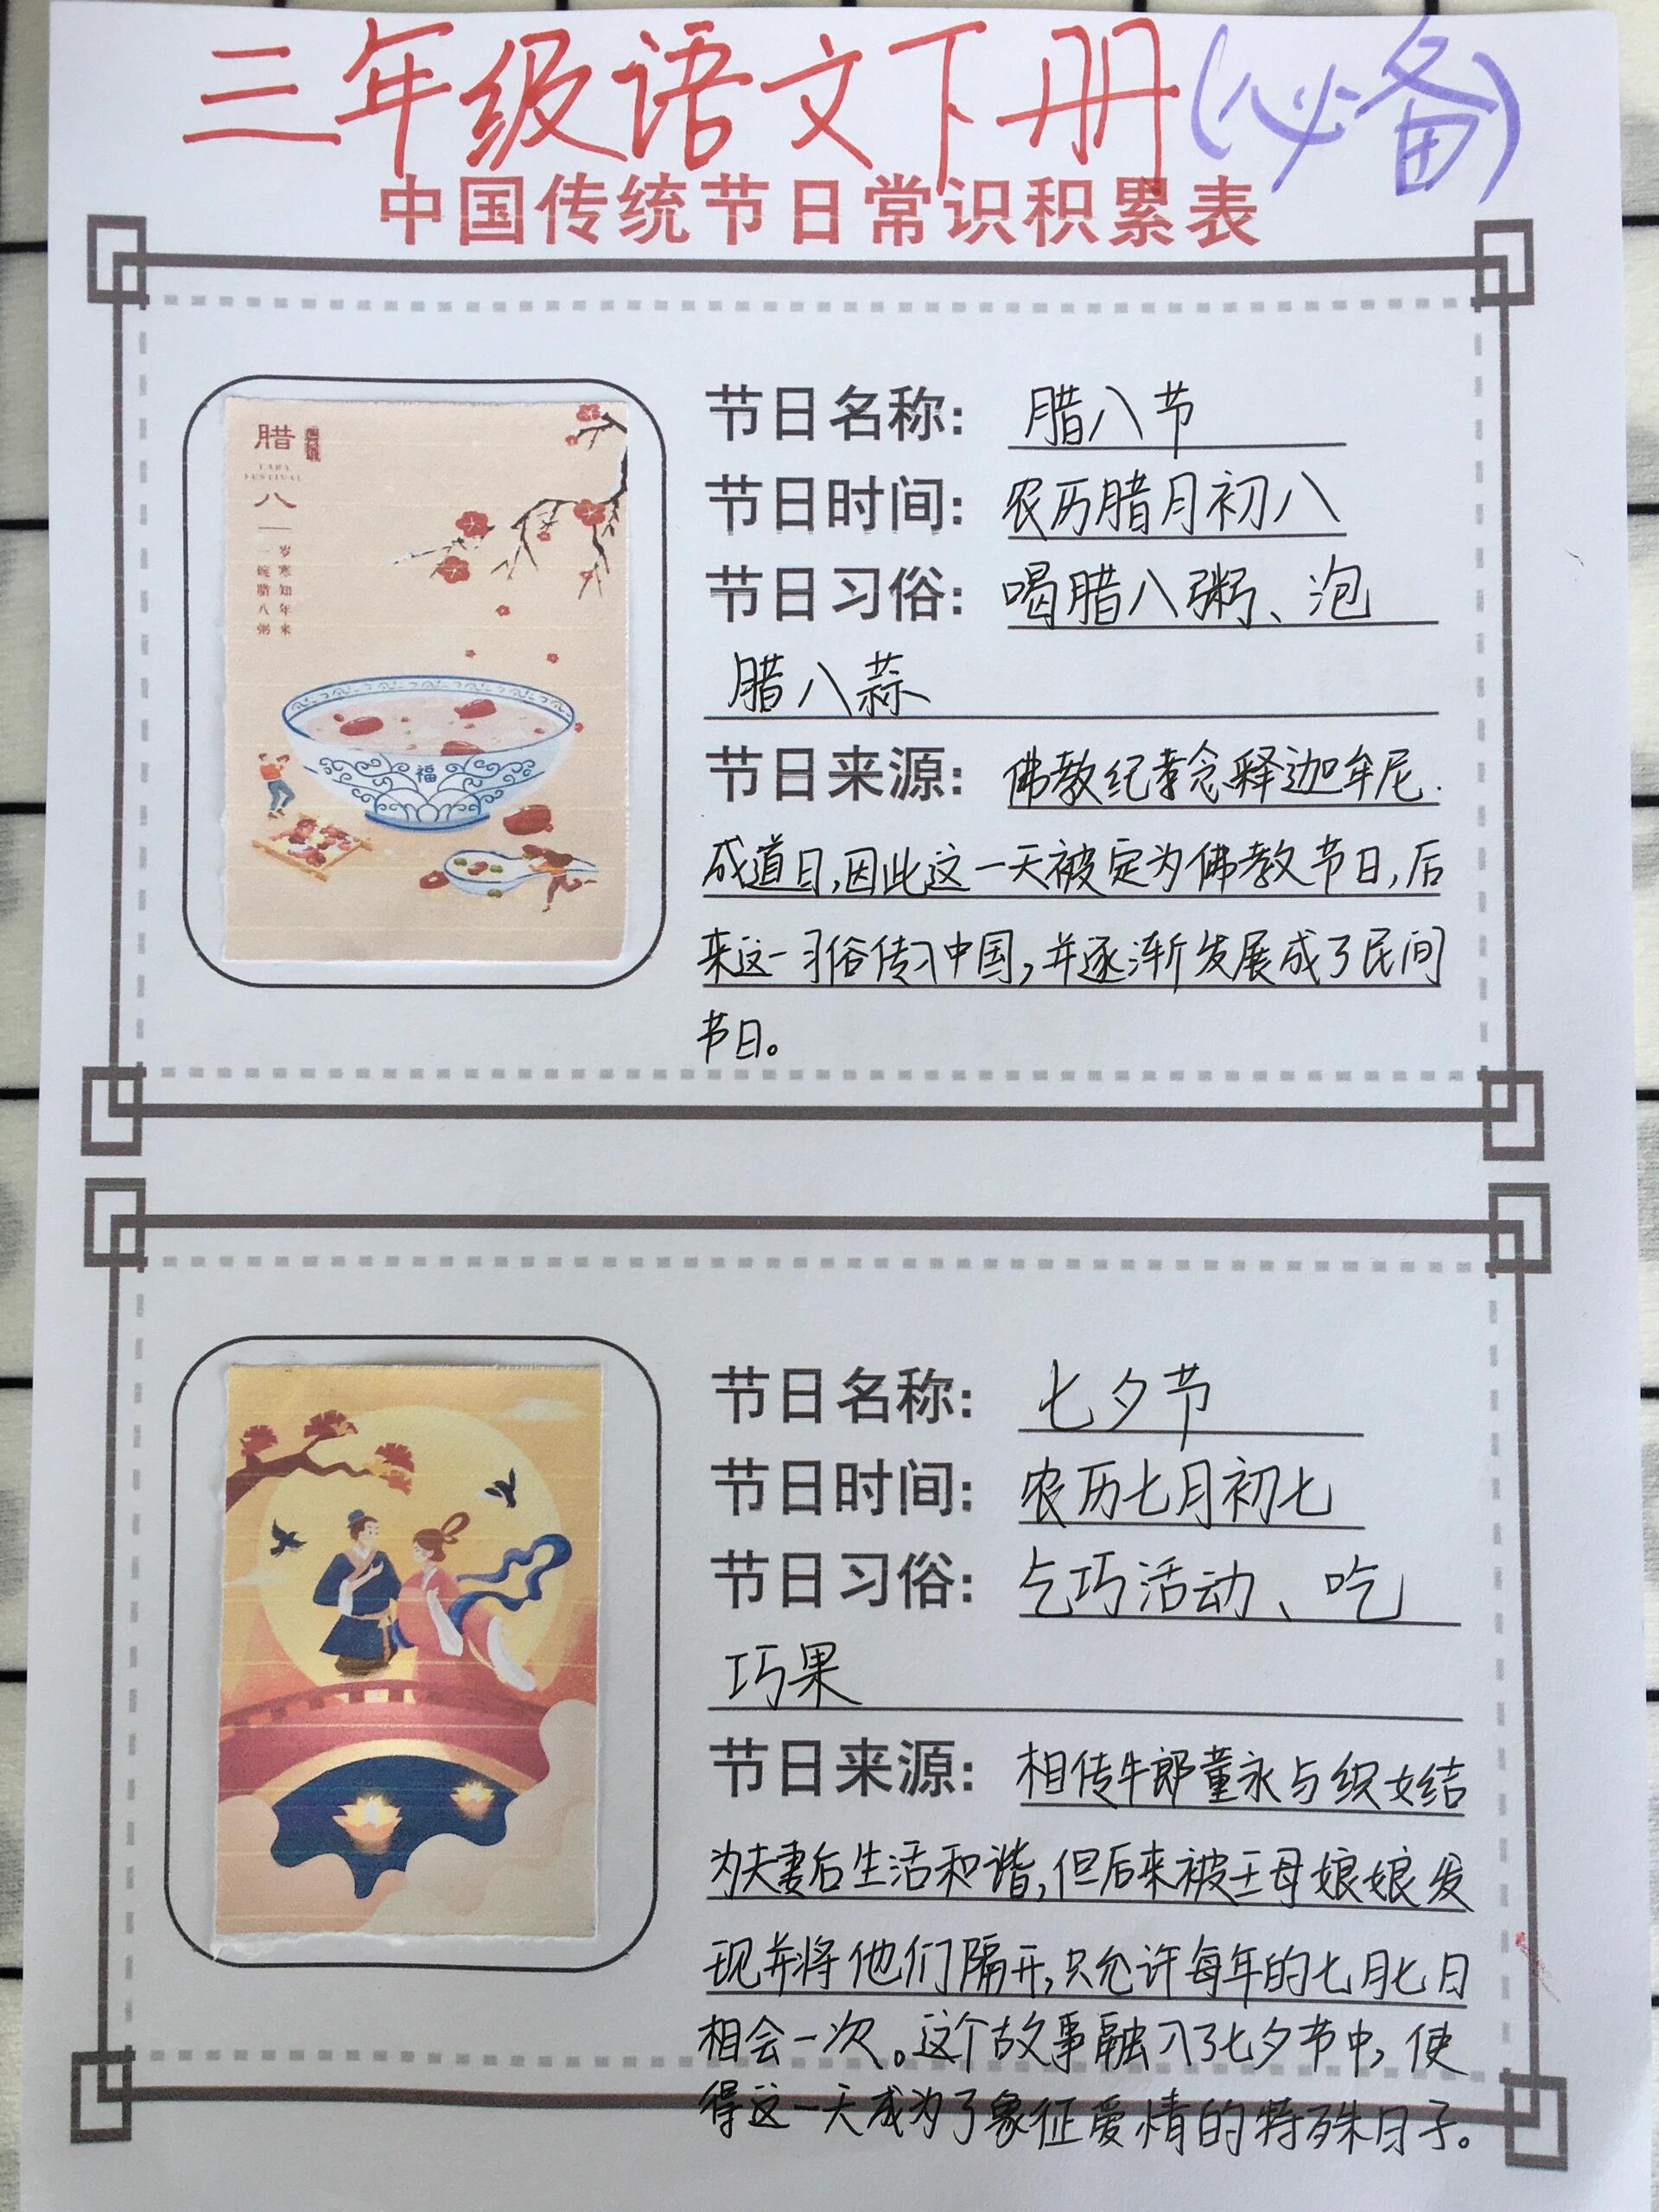 三年级语文下册(必备)
中国传统节日常识积累表
腊
LABA
FESTIVAL
八
岁寒知年来
一碗腊八粥
福
节日名称: 腊八节
节日时间: 农历腊月初八
节日习俗: 喝腊八粥、泡
腊八蒜
节日来源: 佛教纪念释迦牟尼
成道日,因此这一天被定为佛教节日,后
来这一习俗传入中国,并逐渐发展成了民间
节日。
节日名称: 七夕节
节日时间: 农历七月初七
节日习俗: 乞巧活动、吃
巧果
节日来源: 相传牛郎董永与织女结
为夫妻后生活和谐,但后来被王母娘娘发
现并将他们隔开,只允许每年的七月七日
相会一次。这个故事融入了七夕节中,使
得这一天成为了象征爱情的特殊日子。